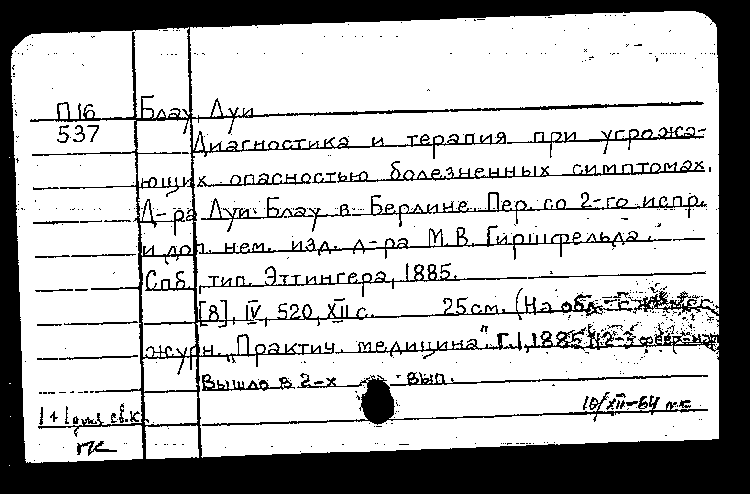 П16 Блау, Луи
537 Диагностика и терапия при угрожа-
ющих опасностью болезненных симптомах.
Д-ра Луи Блау в Берлине. Пер. со 2-го испр.
и доп. нем. изд. д-ра М.В. Гиршфельда.
Спб., тип. Эттингера, 1885.
[8], IV, 520, XII с. 25см. (На обл.
журн. „Практич. медицина“. Г.1, 1885 №2-3 февр.-мар
Вышло в 2-х вып.
1+1 св.к. 10/XII-54